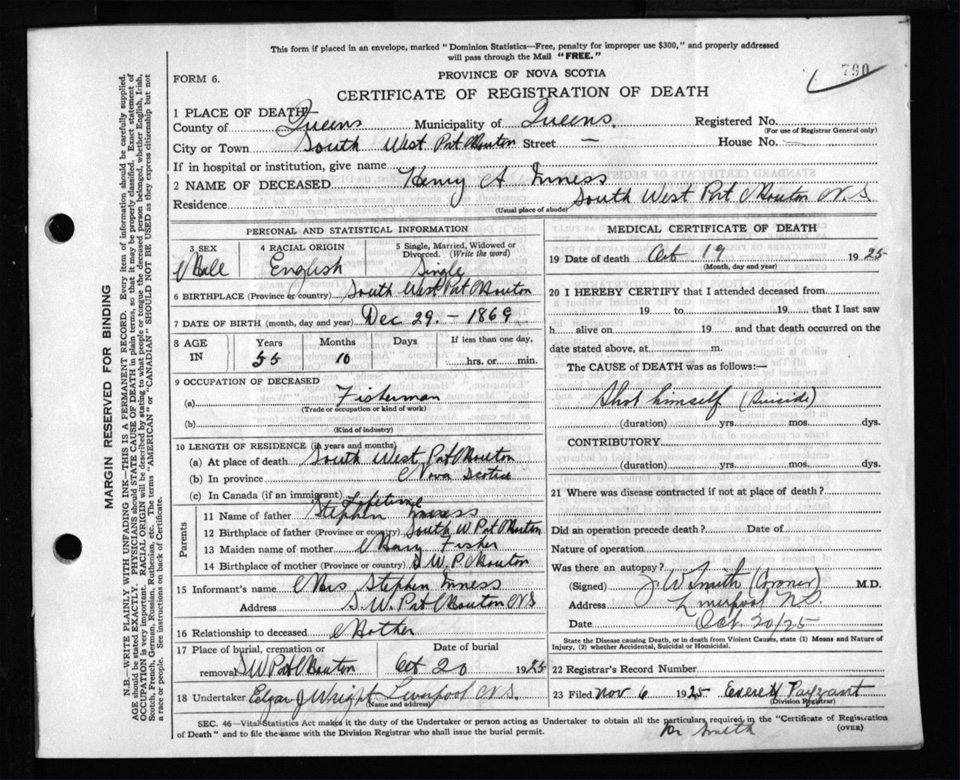 This form if placed in an envelope, marked "Dominion Statistics—Free, penalty for improper use $300," and properly addressed
will pass through the Mail "FREE."
FORM 6.
PROVINCE OF NOVA SCOTIA
790
CERTIFICATE OF REGISTRATION OF DEATH
1 PLACE OF DEATH
County of Queens Municipality of Queens. Registered No.
(For use of Registrar General only)
City or Town South West Port Mouton Street — House No.
If in hospital or institution, give name
2 NAME OF DECEASED Henry A Inness
Residence South West Port Mouton N.S
(Usual place of abode)
PERSONAL AND STATISTICAL INFORMATION
3 SEX 4 RACIAL ORIGIN 5 Single, Married, Widowed or Divorced. (Write the word)
Male English Single
6 BIRTHPLACE (Province or country) South West Port Mouton
7 DATE OF BIRTH (month, day and year) Dec 29. - 1869
8 AGE IN Years Months Days If less than one day,
55 10 hrs. or min.
9 OCCUPATION OF DECEASED
(a) Fisherman
(Trade or occupation or kind of work)
(b)
(Kind of industry)
10 LENGTH OF RESIDENCE (in years and months)
(a) At place of death South West Port Mouton
(b) In province Nova Scotia
(c) In Canada (if an immigrant) Lifetime
Parents
11 Name of father Stephen Inness
12 Birthplace of father (Province or country) South W Port Mouton
13 Maiden name of mother Mary Fisher
14 Birthplace of mother (Province or country) S. W. P. Mouton
15 Informant's name Mrs Stephen Inness
Address S. W. Port Mouton NS
16 Relationship to deceased Mother
17 Place of burial, cremation or removal Date of burial
S W Port Mouton Oct 20 1925
18 Undertaker Edgar J Wright Liverpool N.S.
(Name and address)
MEDICAL CERTIFICATE OF DEATH
19 Date of death Oct 19 1925
(Month, day and year)
20 I HEREBY CERTIFY that I attended deceased from
19 to 19 that I last saw
h alive on 19 and that death occurred on the
date stated above, at m.
The CAUSE of DEATH was as follows:—
Shot himself (Suicide)
(duration) yrs. mos. dys.
CONTRIBUTORY
(duration) yrs. mos. dys.
21 Where was disease contracted if not at place of death?
Did an operation precede death? Date of
Nature of operation
Was there an autopsy?
(Signed) J. W Smith (Coroner) M.D.
Address Liverpool N.S.
Date Oct 20/25
State the Disease causing Death, or in death from Violent Causes, state (1) Means and Nature of
Injury, (2) whether Accidental, Suicidal or Homicidal.
22 Registrar's Record Number
23 Filed Nov 6 1925 Everett Payzant
(Division Registrar)
SEC. 46—Vital Statistics Act makes it the duty of the Undertaker or person acting as Undertaker to obtain all the particulars required in the "Certificate of Registration
of Death" and to file the same with the Division Registrar who shall issue the burial permit.
(OVER)
Dr Smith
MARGIN RESERVED FOR BINDING
N.B.—WRITE PLAINLY WITH UNFADING INK—THIS IS A PERMANENT RECORD. Every item of information should be carefully supplied.
AGE should be stated EXACTLY. PHYSICIANS should STATE CAUSE OF DEATH in plain terms, so that it may be properly classified. Exact statement of
OCCUPATION is very important. RACIAL ORIGIN will be described by stating to what people or tongue the deceased person belonged, whether English, Irish,
Scotch, French, German, Russian, Ruthenian, etc. The terms "AMERICAN" or "CANADIAN" SHOULD NOT BE USED as they express citizenship but not
a race or people. See instructions on back of Certificate.